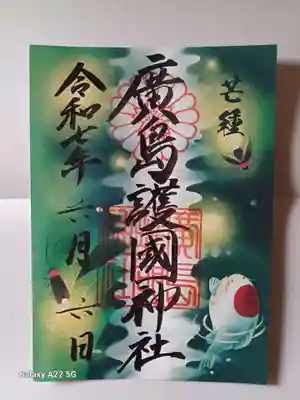 芒種
廣島護國神社
令和七年六月六日
Galaxy A22 5G